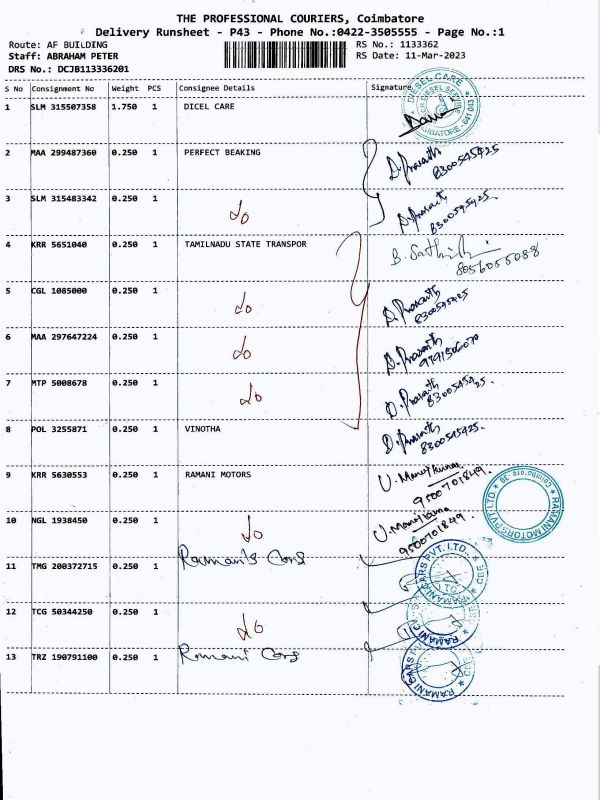 THE PROFESSIONAL COURIERS, Coimbatore
Delivery Runsheet - P43 - Phone No.:0422-3505555 - Page No.:1
Route: AF BUILDING RS No.: 1133362
Staff: ABRAHAM PETER RS Date: 11-Mar-2023
DRS No.: DCJB113336201
S No Consignment No Weight PCS Consignee Details Signature
1 SLM 315507358 1.750 1 DICEL CARE
DIESEL CARE
641 043
2 MAA 299487360 0.250 1 PERFECT BEAKING D. Prasath
8300545425
3 SLM 315483342 0.250 1 do D. Prasath
8300545425.
4 KRR 5651040 0.250 1 TAMILNADU STATE TRANSPOR B. Sathish
8056055088
5 CGL 1085000 0.250 1 do D. Prasath
8300545425
6 MAA 297647224 0.250 1 do D. Prasath
7 MTP 5008678 0.250 1 do D. Prasath
8300545425.
8 POL 3255871 0.250 1 VINOTHA D. Prasath
8300545425.
9 KRR 5630553 0.250 1 RAMANI MOTORS U. Manojkumar
9500701849.
RAMANI MOTORS PVT LTD
10 NGL 1938450 0.250 1 do U. Manojkumar
9500701849.
11 TMG 200372715 0.250 1 Ramani's Cars
RAMANI CARS PVT. LTD.
12 TCG 50344250 0.250 1 do
RAMANI CARS PVT
13 TRZ 190791100 0.250 1 Ramani Cars
RAMANI CARS PVT